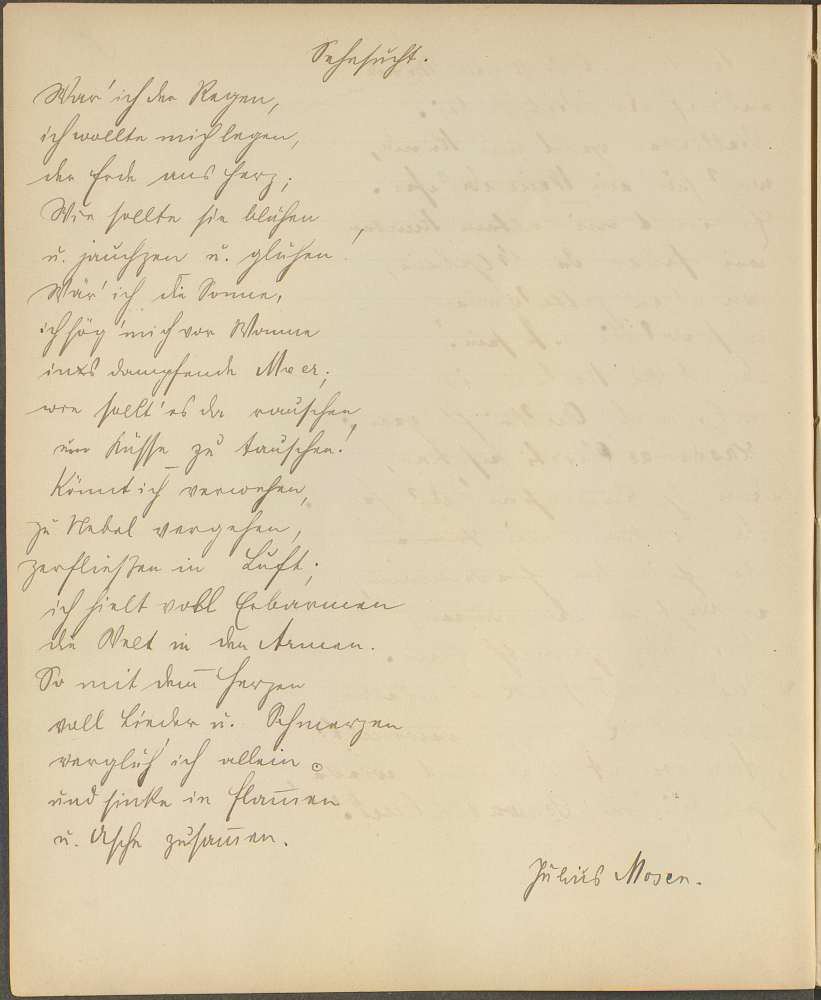 Sehnsucht.
Wär' ich der Regen,
ich wollte mich legen,
der Erde ans Herz;
Wie sollte sie blühen,
u. jauchzen u. glühen!
Wär' ich die Sonne,
ich sög' mich vor Wonne
ins dampfende Meer;
wie sollt' es da rauschen,
um Küsse zu tauschen!
Könnt ich verwehen,
zu Nebel vergehen,
zerfließen in Luft;
ich hielt voll Erbarmen
die Welt in den Armen.
So mit dem Herzen
voll Lieder u. Schmerzen
verglüh' ich allein
und sinke in Flam̅en
u. Asche zusam̅en.
Julius Mosen.